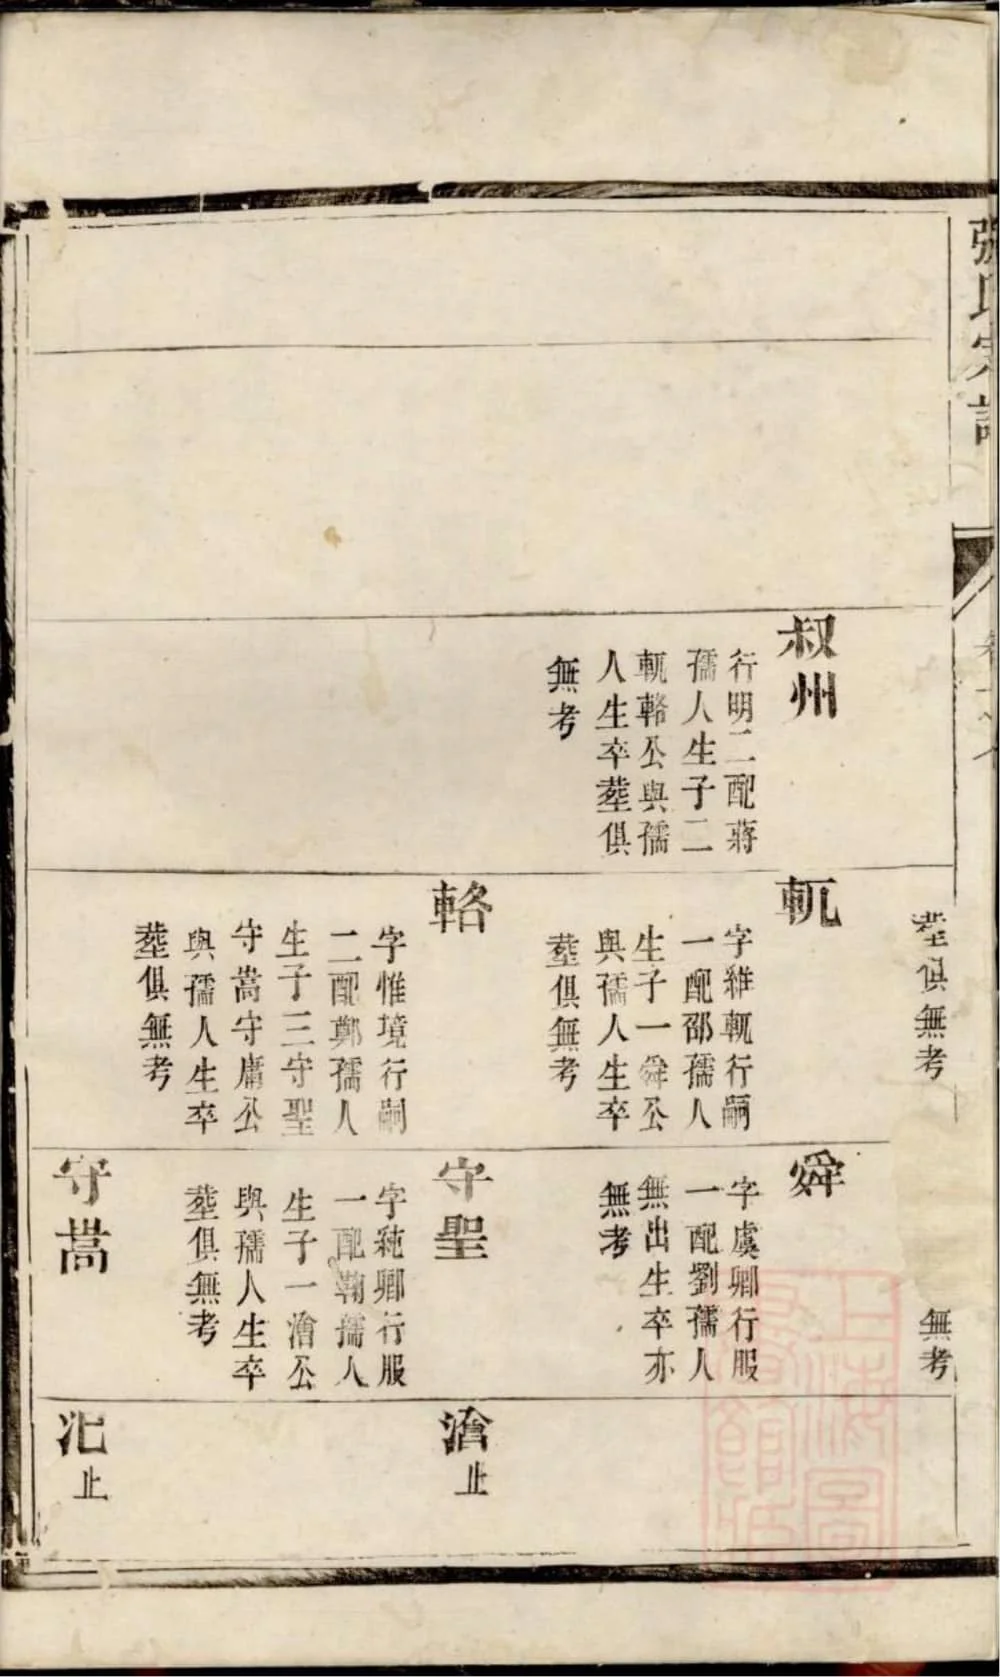 張氏宗譜
葬俱無考
無考
叔州
行明二配蔣
孺人生子二
軏輅公與孺
人生卒葬俱
無考
軏
字維軏行嗣
一配邵孺人
生子一舜公
與孺人生卒
葬俱無考
輅
字惟境行嗣
二配鄭孺人
生子三守聖
守嵩守庸公
與孺人生卒
葬俱無考
舜
字虞卿行服
一配劉孺人
無出生卒亦
無考
守聖
字純卿行服
一配鞠孺人
生子一澮公
與孺人生卒
葬俱無考
守嵩
澮止
汜止